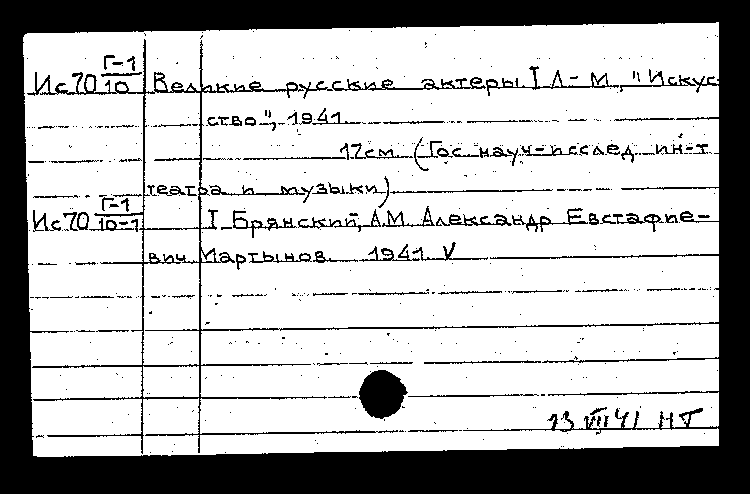 Ис70 Г-1/10 Великие русские актеры. I Л-М, "Искус-
ство", 1941.
17см. (Гос. науч-исслед. ин-т
театра и музыки)
Ис70 Г-1/10-1 I. Брянский, А.М. Александр Евстафие-
вич Мартынов. 1941. V
13 VIII 41 НТ